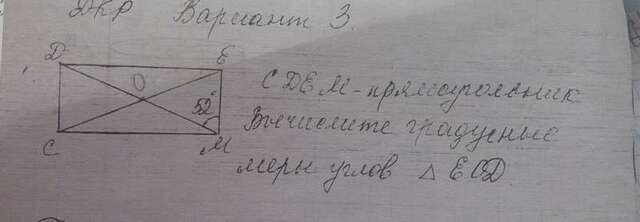 ДКР Вариант 3.
D E
O
52°
C M
CDEM - прямоугольник
Вычислите градусные
меры углов △ EOD